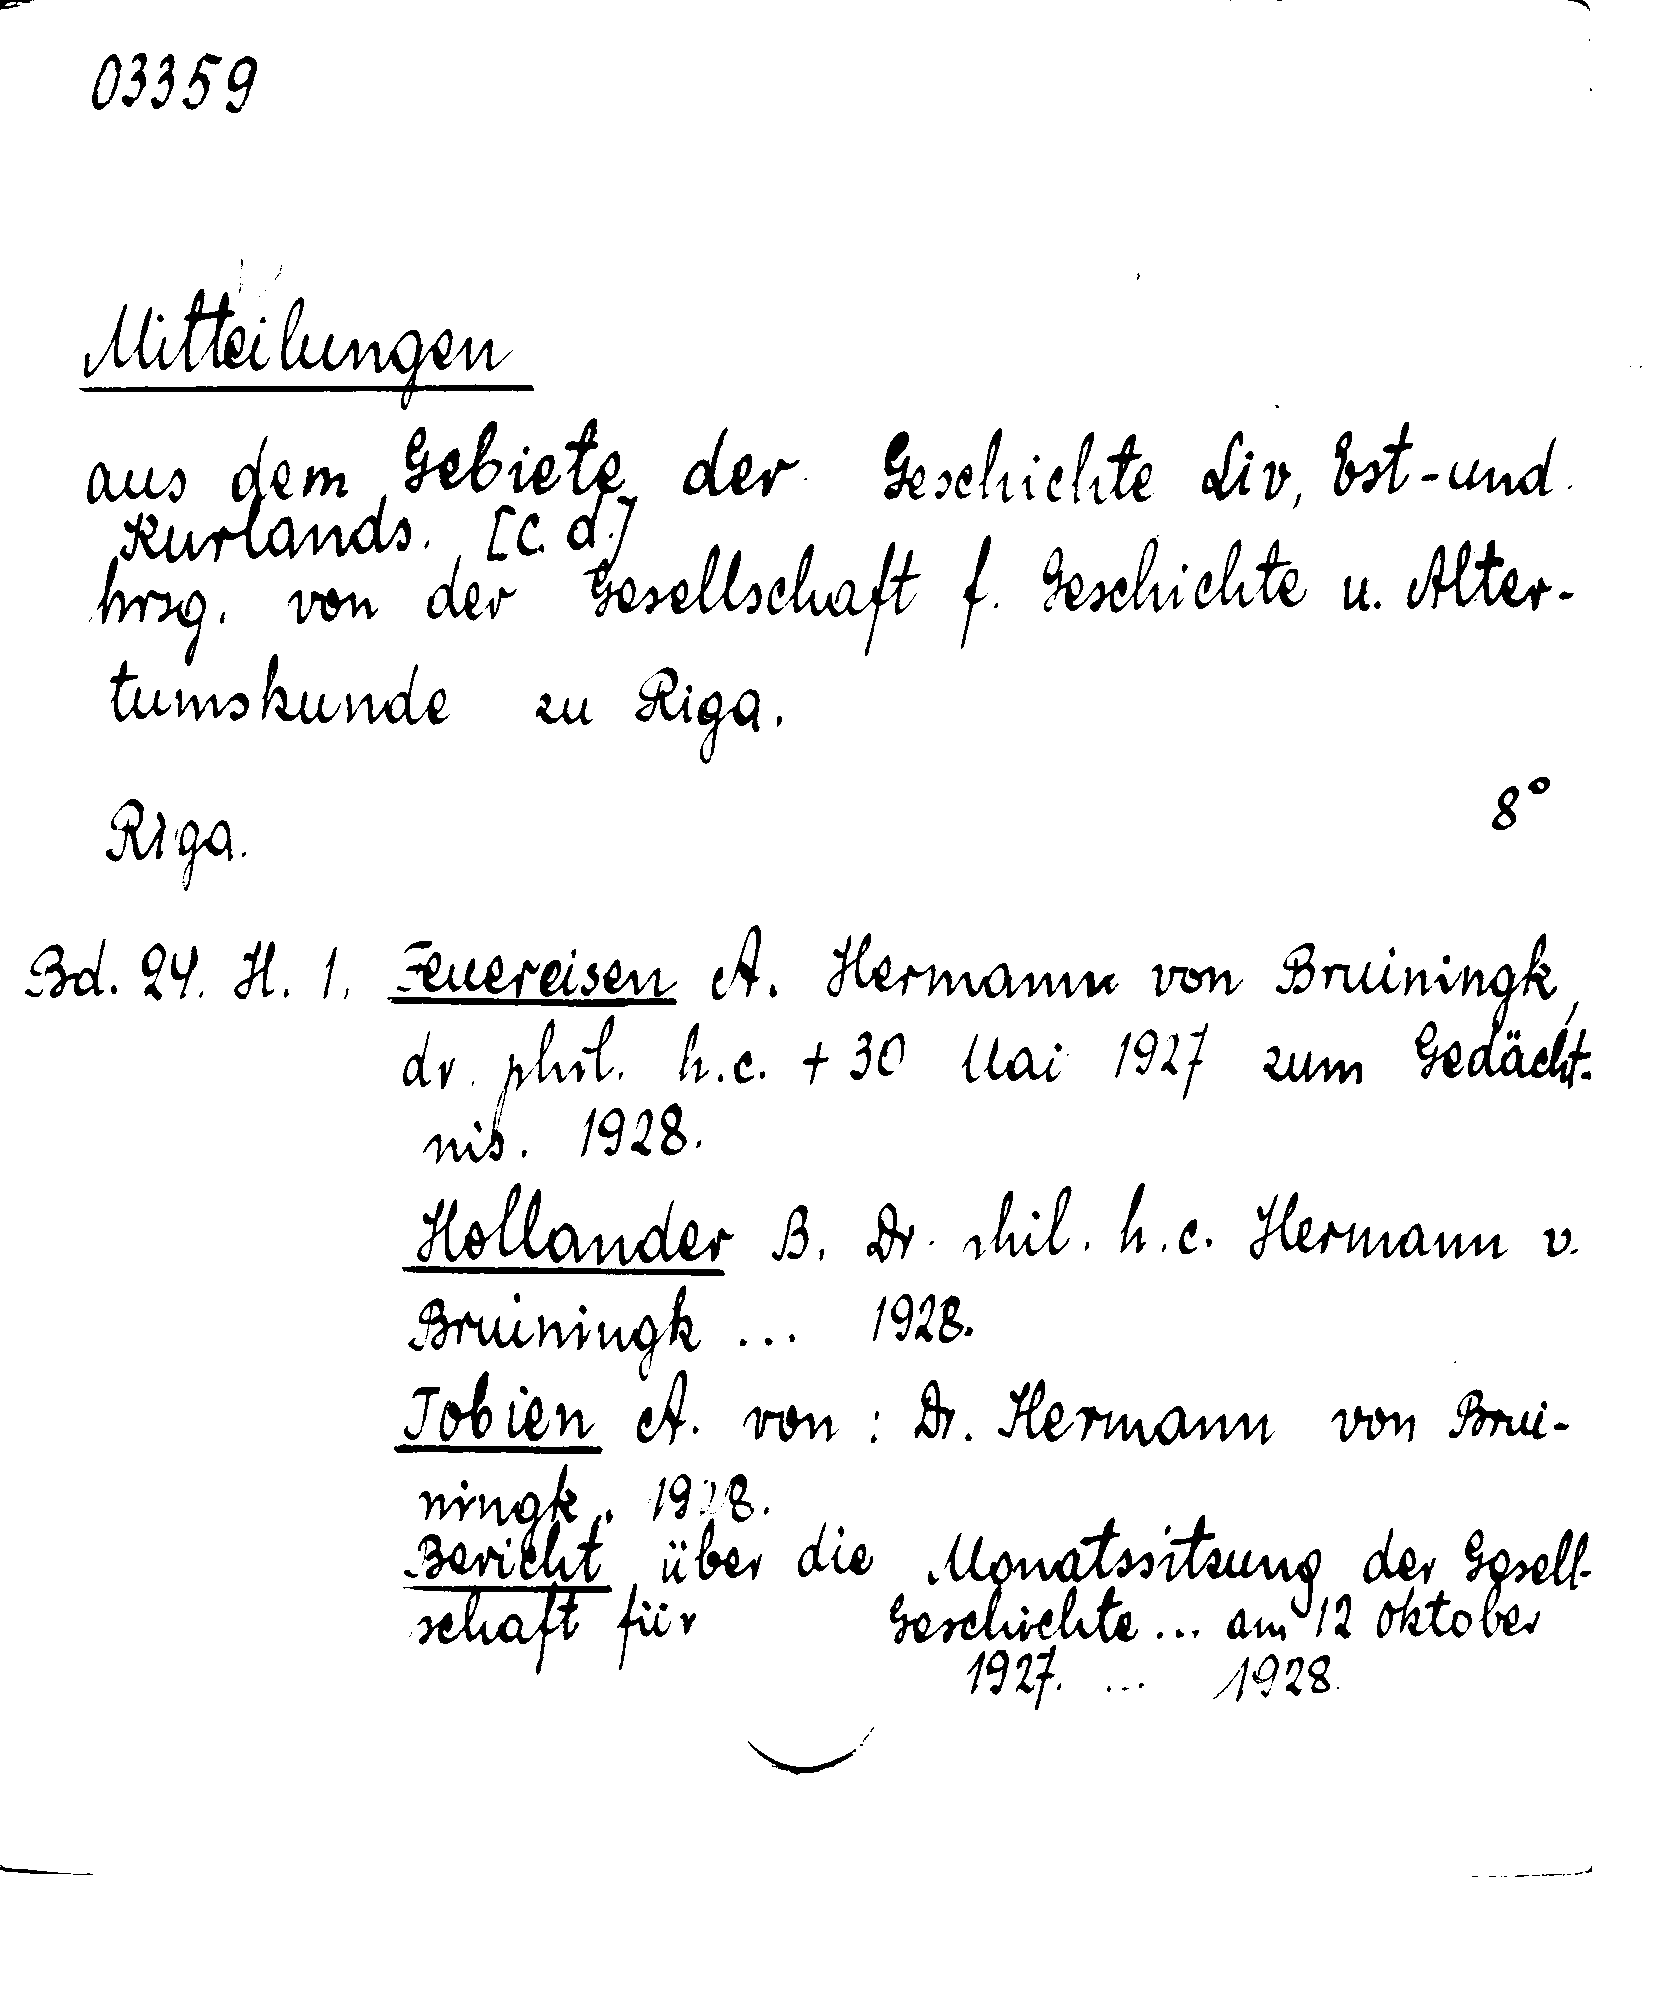 03359
Mitteilungen
aus dem Gebiete der Geschichte Liv, Est-und
Kurlands. [C. d.]
hrsg. von der Gesellschaft f. Geschichte u. Alter-
tumskunde zu Riga.
8°
Riga.
Bd. 24. H. 1. Feuereisen A. Hermann von Bruiningk,
dr. phil. h.c. + 30 Mai 1927 zum Gedächt-
nis. 1928.
Hollander B. Dr. phil. h.c. Hermann v.
Bruiningk ... 1928.
Tobien A. von : Dr. Hermann von Brui-
ningk. 1928.
Bericht über die Monatssitzung der Gesell-
schaft für Geschichte ... am 12 Oktober
1927. ... 1928.